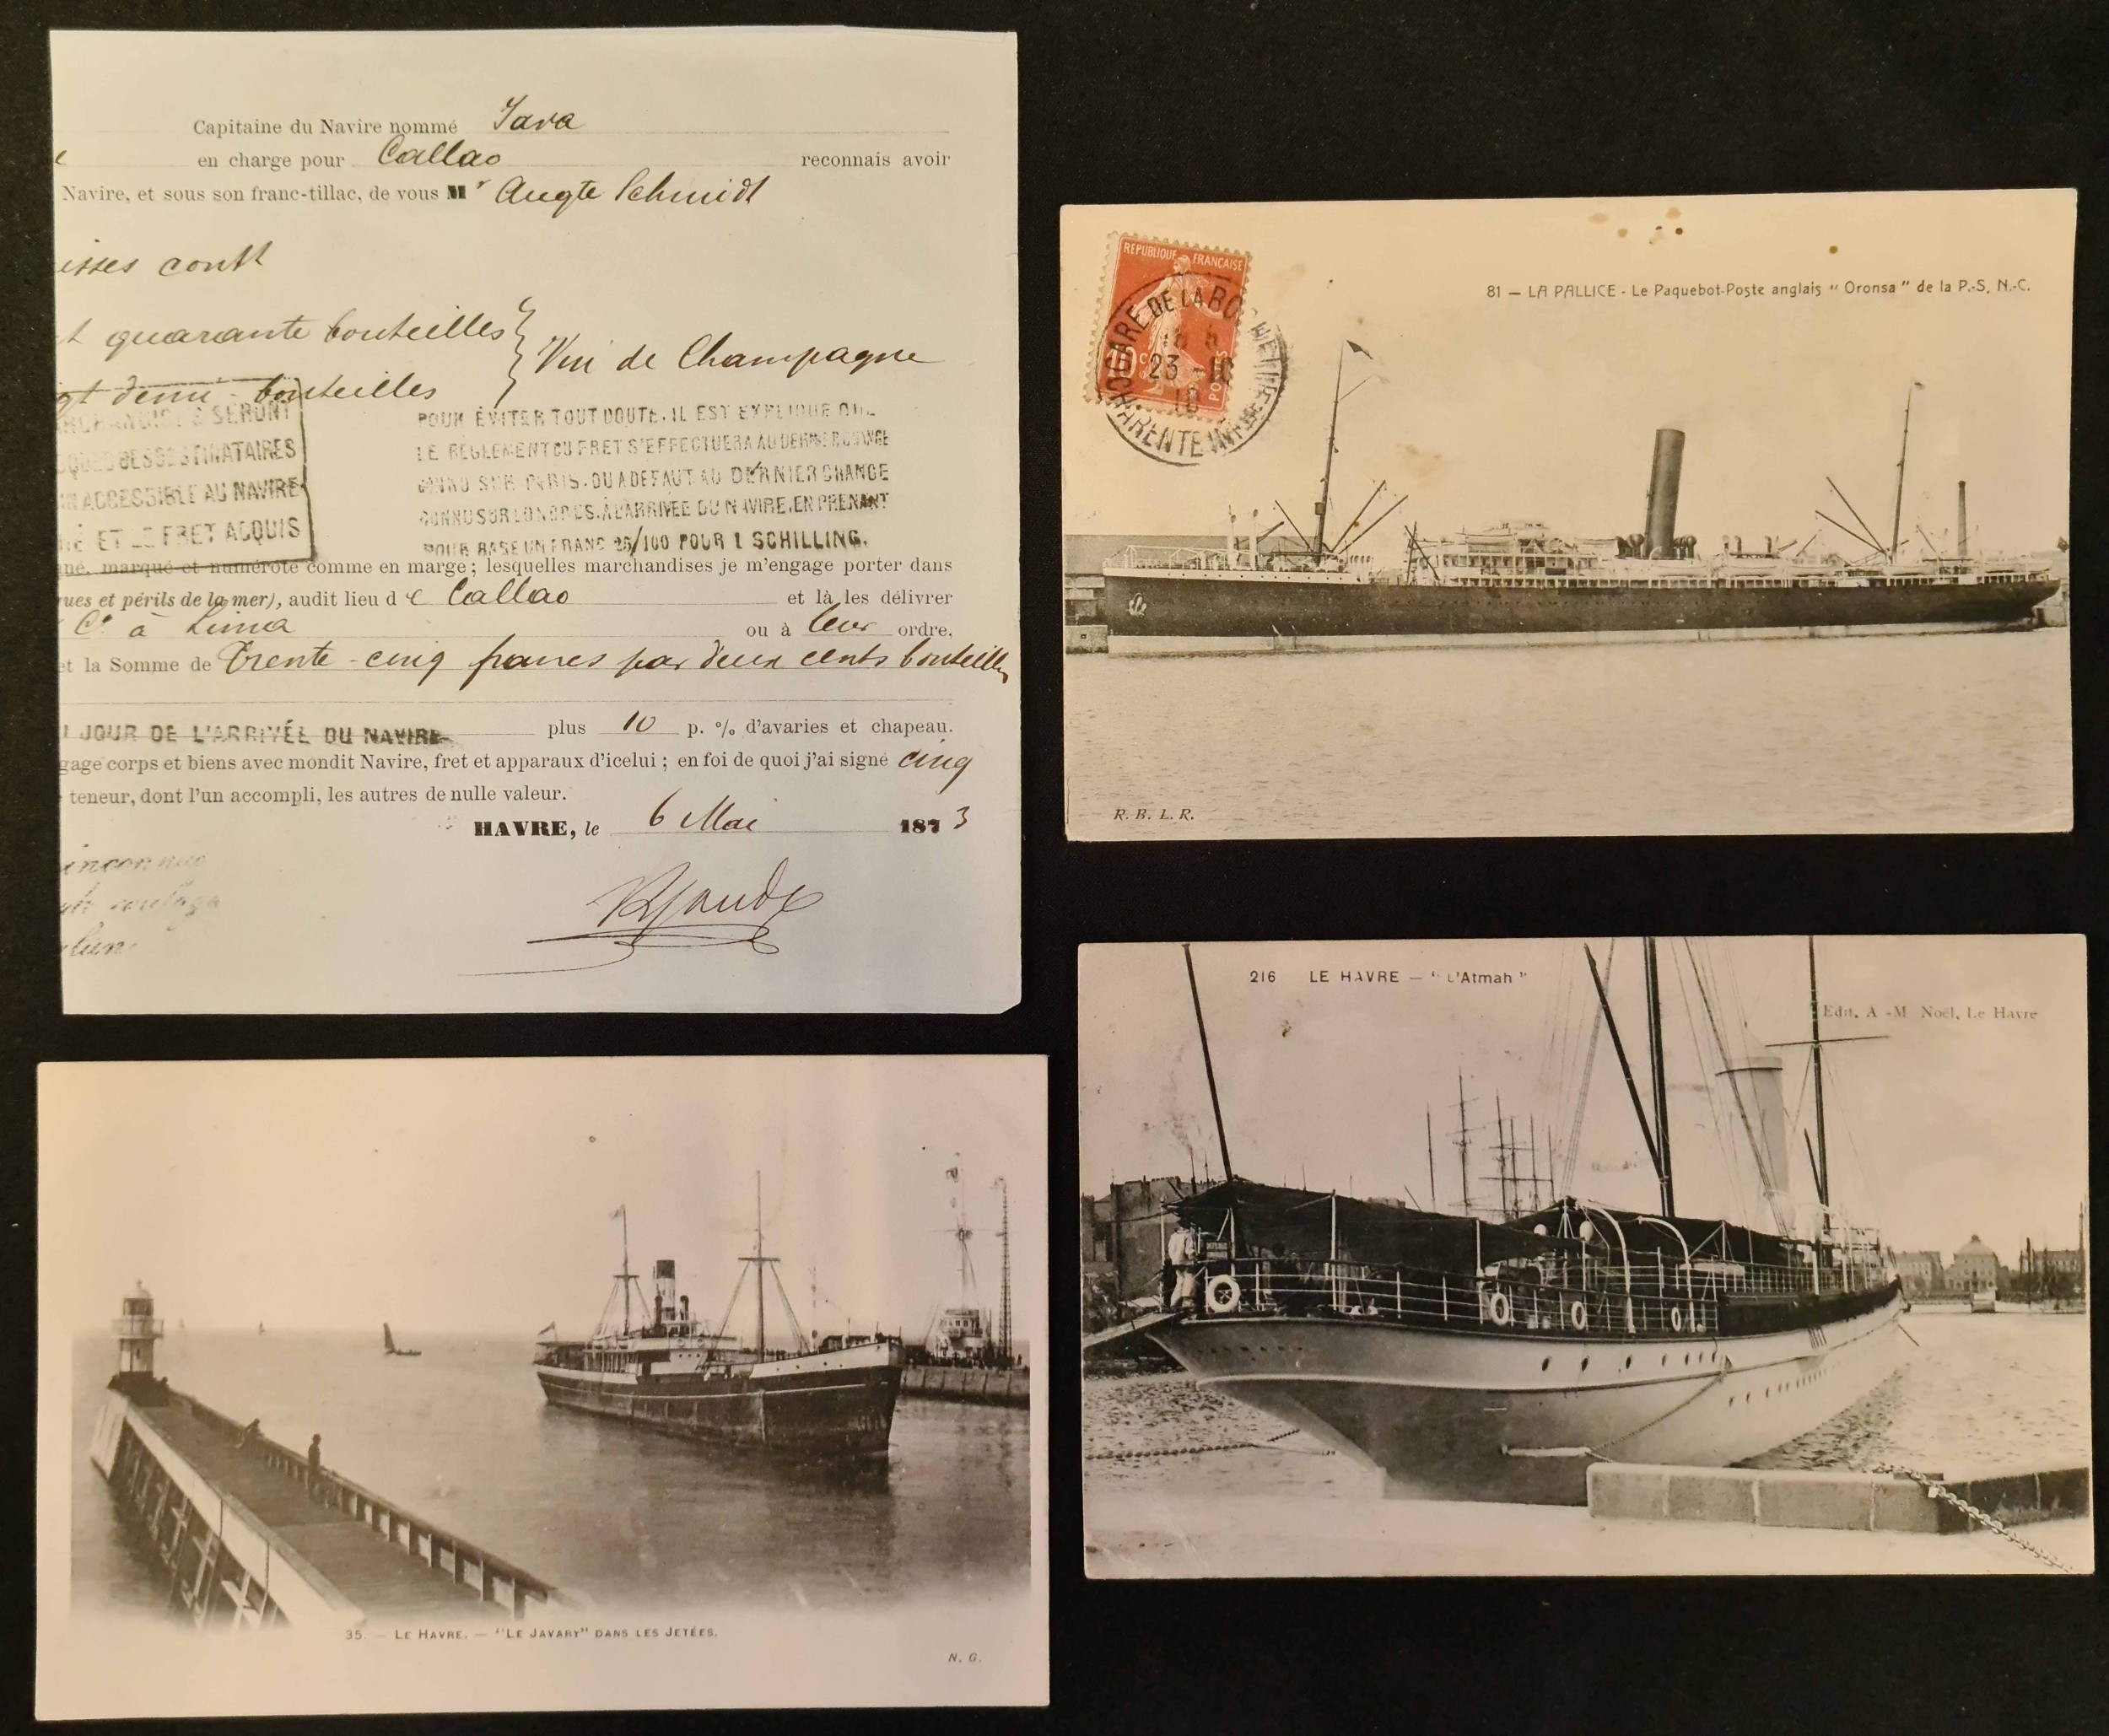 Capitaine du Navire nommé Java
en charge pour Callao reconnais avoir
Navire, et sous son franc-tillac, de vous Mr Augte Schmidt
isses contt
t quarante bouteilles
Vin de Champagne
gt demi-bouteilles
RCHANDISES SERONT
QUES DES DESTINATAIRES
N ACCESSIBLE AU NAVIRE
ET LE FRET ACQUIS
POUR ÉVITER TOUT DOUTE, IL EST EXPLIQUÉ QUE
LE RÈGLEMENT DU FRET S'EFFECTUERA AU DERNIER CHANGE
CONNU SUR PARIS, OU A DEFAUT AU DERNIER CHANGE
CONNU SUR LONDRES, À L'ARRIVÉE DU NAVIRE, EN PRENANT
POUR BASE UN FRANC 25/100 POUR 1 SCHILLING.
né, marqué et numéroté comme en marge; lesquelles marchandises je m'engage porter dans
ques et périls de la mer), audit lieu de Callao et là les délivrer
Co à Lima ou à leur ordre,
et la Somme de Trente-cinq francs par deux cents bouteilles
JOUR DE L'ARRIVÉE DU NAVIRE plus 10 p. % d'avaries et chapeau.
gage corps et biens avec mondit Navire, fret et apparaux d'icelui; en foi de quoi j'ai signé cinq
teneur, dont l'un accompli, les autres de nulle valeur.
HAVRE, le 6 Mai 1873
inconnu
REPUBLIQUE FRANÇAISE
10c
POSTES
GARE DE LA ROCHELLE
23-10
10
CHARENTE INFRE
81 — LA PALLICE - Le Paquebot-Poste anglais "Oronsa" de la P.-S. N.-C.
R. B. L. R.
35. — LE HAVRE. — "LE JAVARY" DANS LES JETÉES.
N. G.
216 LE HAVRE — "L'Atmah"
Edit. A.-M. Noël, Le Havre